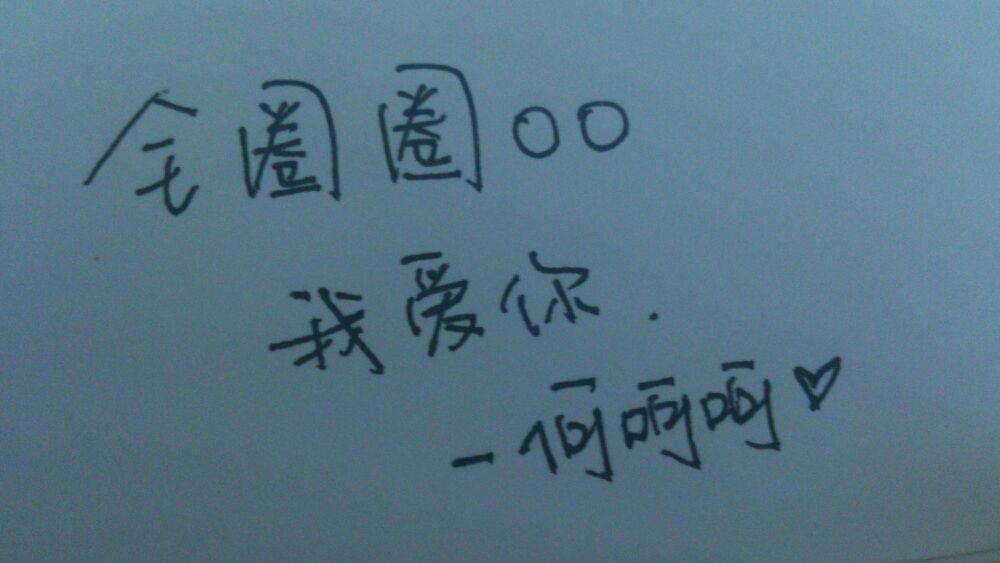 全圈圈○○
我爱你.
-何呵呵♡